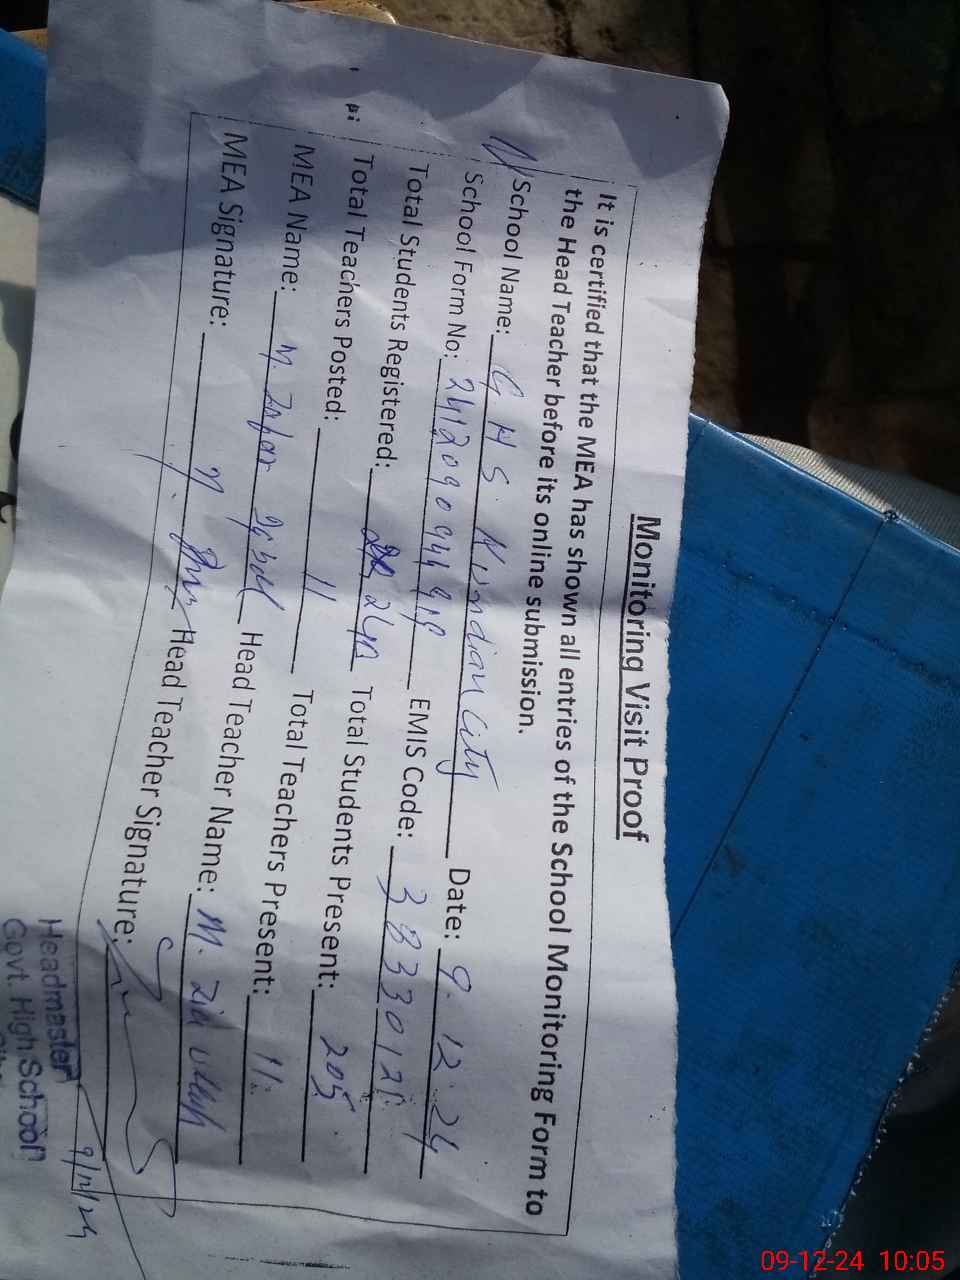 Monitoring Visit Proof
It is certified that the MEA has shown all entries of the School Monitoring Form to
the Head Teacher before its online submission.
School Name: G H S. Kundian City Date: 9.12.24
School Form No: EMIS Code: 38330121
Total Students Registered: Total Students Present: 205
Total Teachers Posted: 11 Total Teachers Present: 11
MEA Name: M. Zafar Iqbal Head Teacher Name: M. Zia Ullah
MEA Signature: Head Teacher Signature:
9/12/24
Headmaster
Govt. High School
09-12-24 10:05